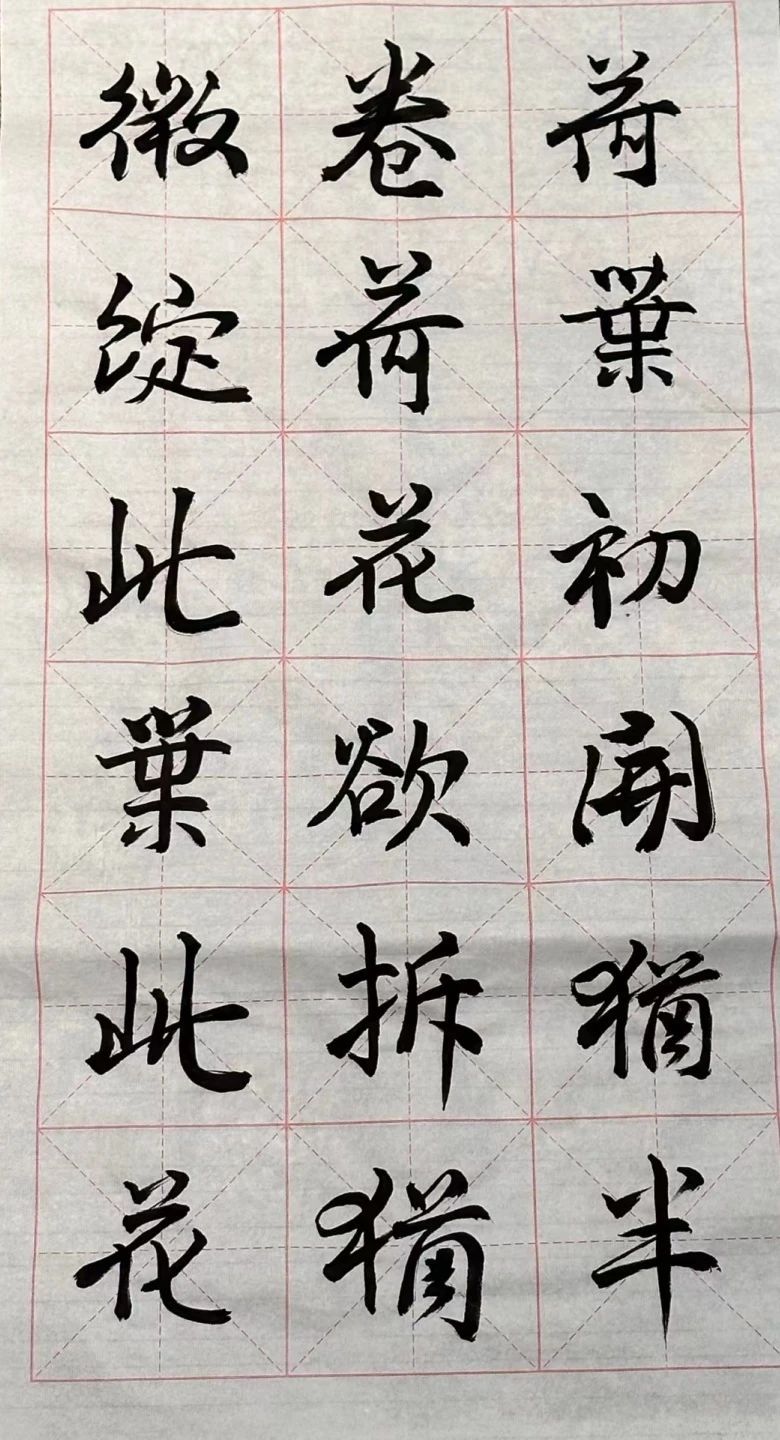 荷葉初開猶半
卷荷花欲拆猶
微綻此葉此花